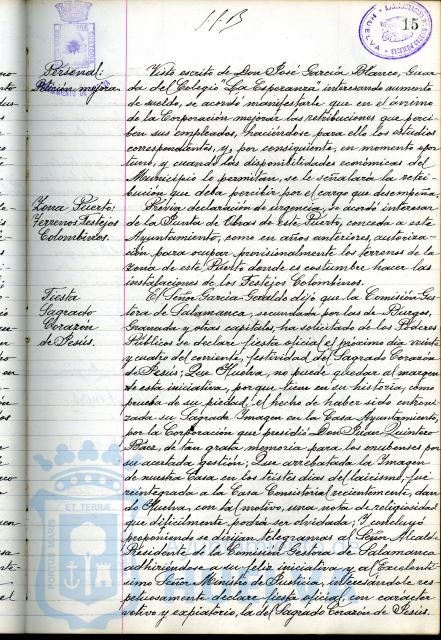 HUELVA
15
Personal:
Petición mejora.
Visto escrito de Don José García Blanco, Guar
da del Colegio "La Esperanza" interesando aumento
de sueldo, se acordó manifestarle que en el ánimo
de la Corporación mejorar las retribuciones que perci
ben sus empleados, haciéndose para ello los estudios
correspondientes, y, por consiguiente, en momento opor
tuno, y cuando las disponibilidades económicas del
Municipio le permitan, se le señalará la retri
bución que deba percibir por el cargo que desempeña.
Zona Puerto:
Terrenos Festejos
Colombinos.
Previa declaración de urgencia, se acordó interesar
de la Junta de Obras de este Puerto, conceda a este
Ayuntamiento, como en años anteriores, autoriza-
ción para ocupar provisionalmente los terrenos de la
zona de este Puerto donde es costumbre hacer las
instalaciones de los Festejos Colombinos.
Fiesta
Sagrado
Corazón
de Jesús.
El Señor García Geraldo dijo que la Comisión Ges
tora de Salamanca, secundada por las de Burgos,
Granada y otras capitales, ha solicitado de los Poderes
Públicos se declare fiesta oficial el próximo día veinte
y cuatro del corriente, festividad del Sagrado Corazón
de Jesús; Que Huelva, no puede quedar al margen
de esta iniciativa, porque tiene en su historia, como
prueba de su piedad, el hecho de haber sido entroni
zada su Sagrada Imagen en la Casa Ayuntamiento,
por la Corporación que presidió Don Juan Quintero
Báez, de tan grata memoria para los onubenses por
su acertada gestión; Que arrebatada la Imagen
de nuestra Casa en los tristes días del laicismo, fue
reintegrada a la Casa Consistorial recientemente, dan
do Huelva, con tal motivo, una nota de religiosidad
que difícilmente podrá ser olvidada; Y concluyó
proponiendo se dirijan telegramas al Señor Alcalde
Presidente de la Comisión Gestora de Salamanca
adhiriéndose a su feliz iniciativa y al Excelentí
simo Señor Ministro de Justicia, interesándole res
petuosamente declare fiesta oficial, con carácter
votivo y expiatorio, la del Sagrado Corazón de Jesús.
PORTUS MARIS ET TERRAE